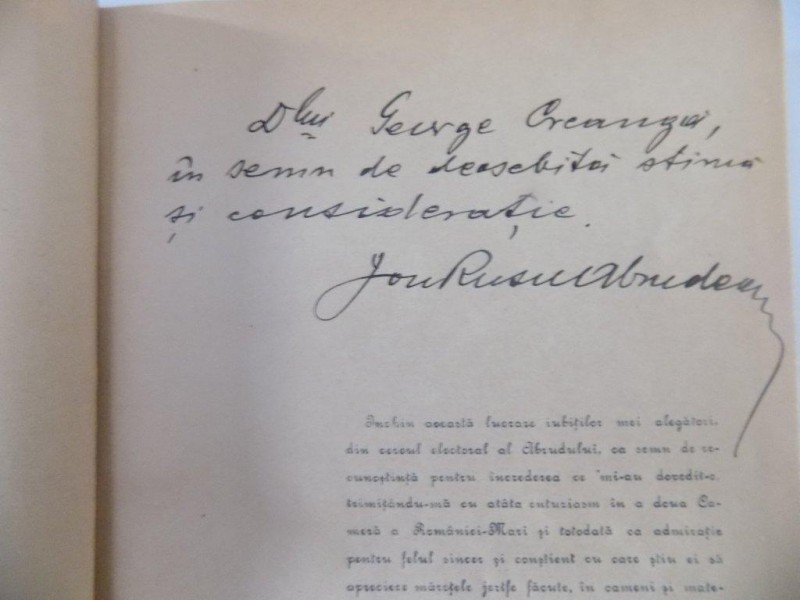 Dlui George Creangă,
în semn de deosebită stimă
și considerație.
Ion Rusu Abrudean
Închin această lucrare iubiților mei alegători,
din cercul electoral al Abrudului, ca semn de re-
cunoștință pentru încrederea ce mi-au dovedit-o,
trimițându-mă cu atâta entuziasm în a doua Ca-
meră a României-Mari și totodată ca admirație
pentru felul sincer și conștient cu care știu ei să
apreciere mărețele jertfe făcute, în oameni și mate-